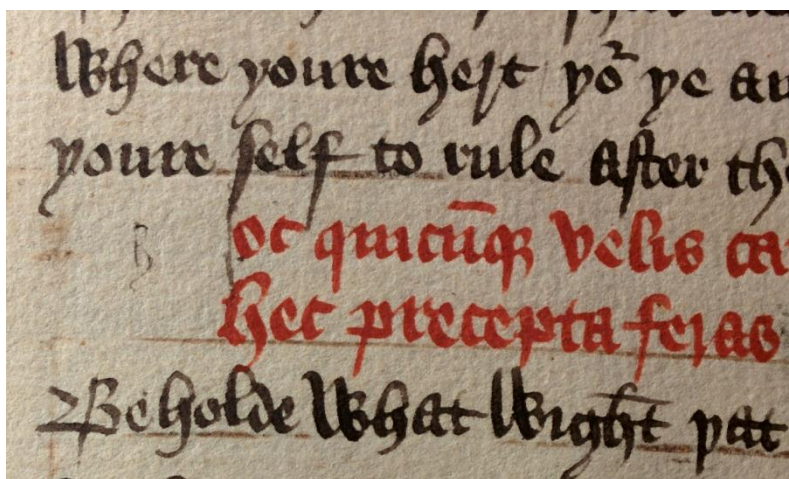 Where youre hert yor ye au
youre self to rule after th
h oc quicūq velis ca
hec precepta feras
Beholde What Wight þat